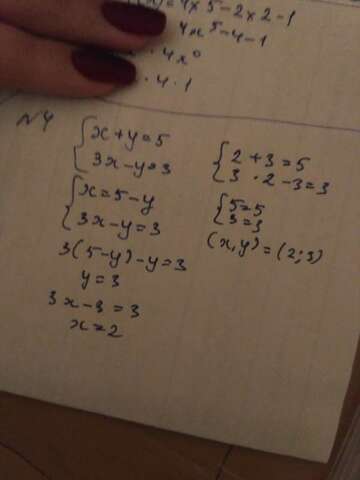 (x)=4x5-2x2-1
4x⁵-4-1
· 4x⁰
· 4 · 1
N4
{x+y=5
3x-y=3
{x=5-y
3x-y=3
3(5-y)-y=3
y=3
3x-3=3
x=2
{2+3=5
3·2-3=3
{5=5
3=3
(x,y)=(2;3)